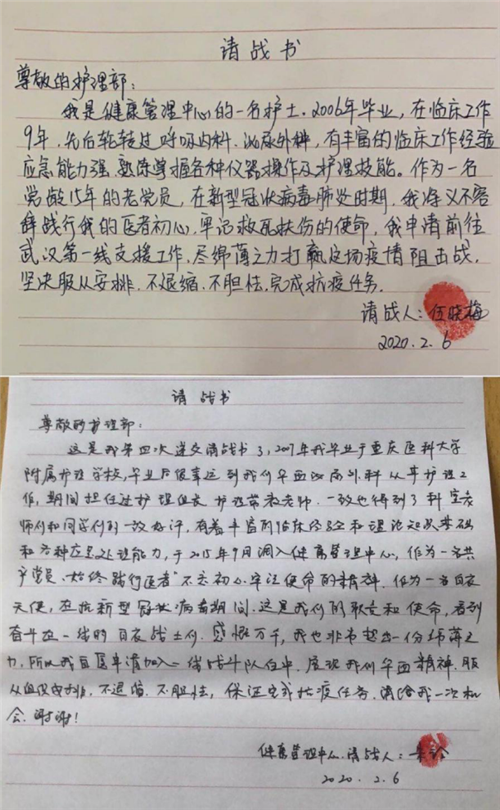 请战书
尊敬的护理部：
我是健康管理中心的一名护士。2006年毕业，在临床工作
9年，先后轮转过呼吸内科、泌尿外科，有丰富的临床工作经验
应急能力强，熟练掌握各种仪器操作及护理技能。作为一名
党龄15年的老党员，在新型冠状病毒肺炎时期，我将义不容
辞践行我的医者初心，牢记救死扶伤的使命，我申请前往
武汉第一线支援工作，尽绵薄之力打赢这场疫情阻击战，
坚决服从安排，不退缩，不胆怯，完成抗疫任务。
请战人：伍晓梅
2020.2.6
请战书
尊敬的护理部：
这是我第四次递交请战书了，2007年我毕业于重庆医科大学
附属护理学校，毕业后很幸运到我们西南外科从事护理工
作，期间担任过护理组长 护理带教老师，一致也得到了科室老
师们和同学们的一致好评，有着丰富的临床经验和理论知识基础
和各种应急处理能力，于2015年9月调入健康管理中心，作为一名共
产党员，始终践行医者"不忘初心，牢记使命的精神，作为一名白衣
天使，在抗新型冠状病毒期间，这是我们的职责和使命，看到
奋斗在一线的白衣战士们，感慨万千，我也非常想出一份绵薄之
力，所以我自愿申请加入一线战斗队伍中，展现我们西南精神，服
从组织安排，不退缩、不胆怯，保证完成抗疫任务，请给我一次机
会，谢谢！
健康管理中心 请战人：
2020.2.6